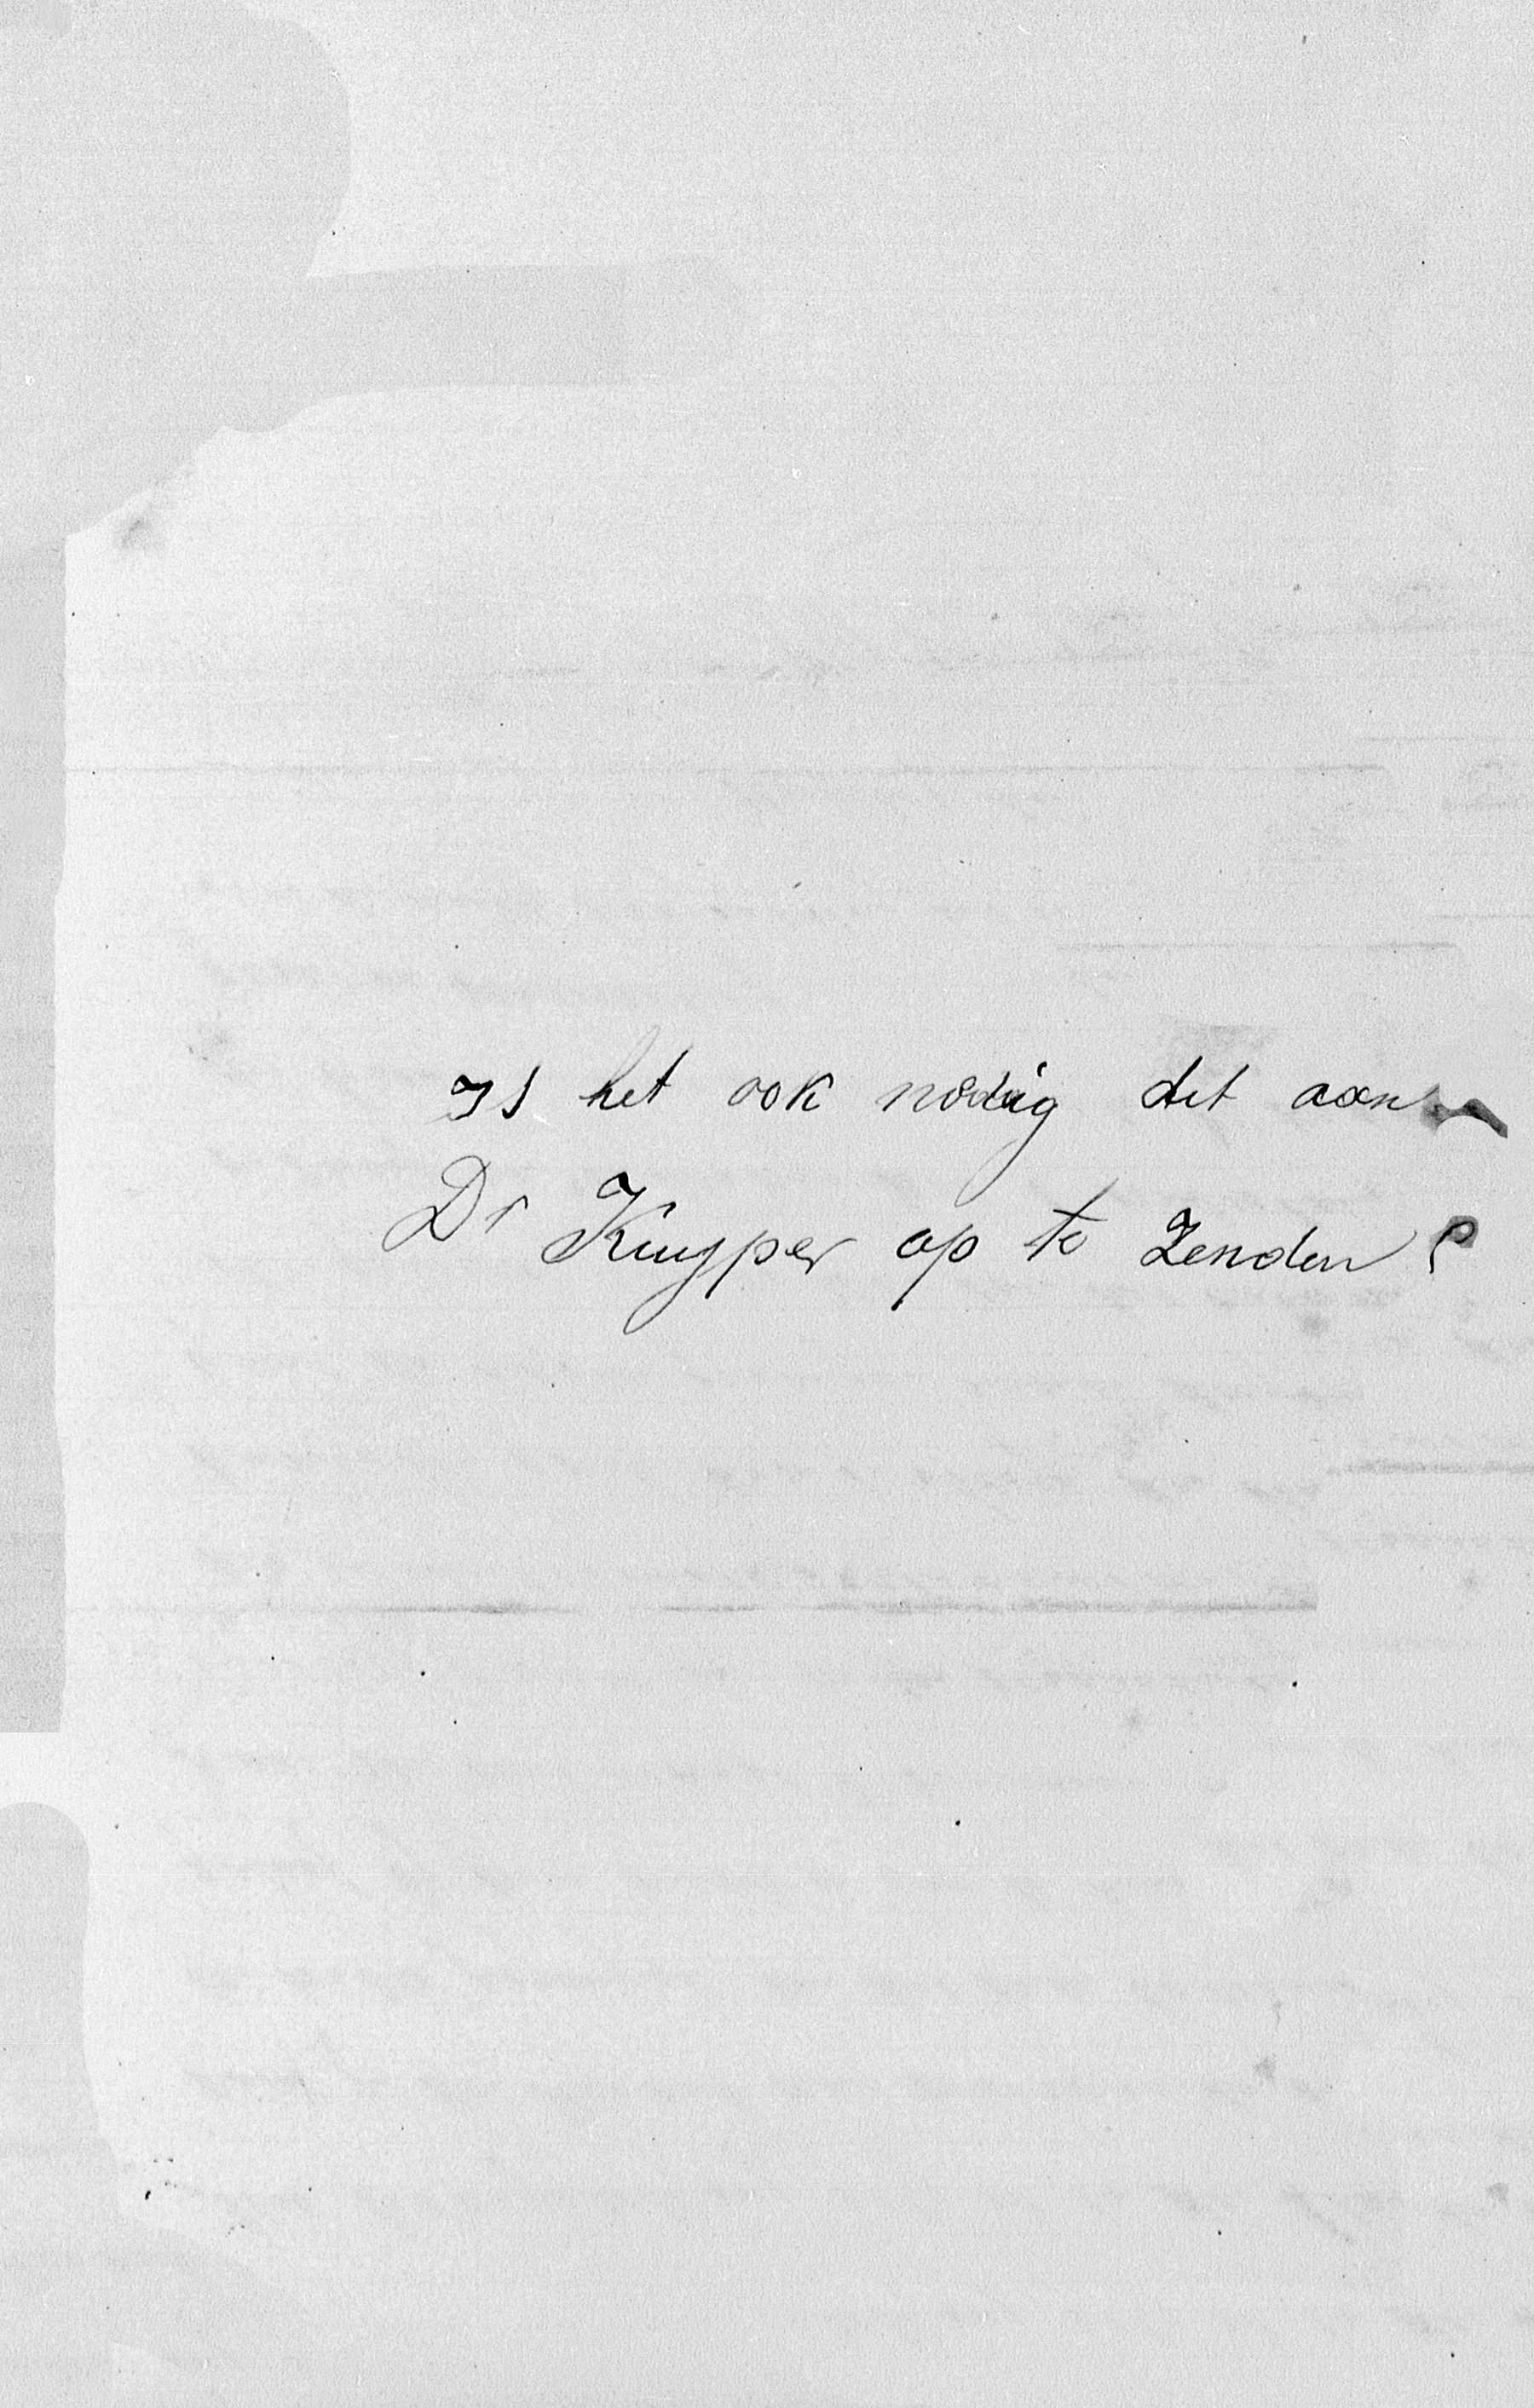 Is het ook nodig dit aan
Dr Kuyper op te zenden?